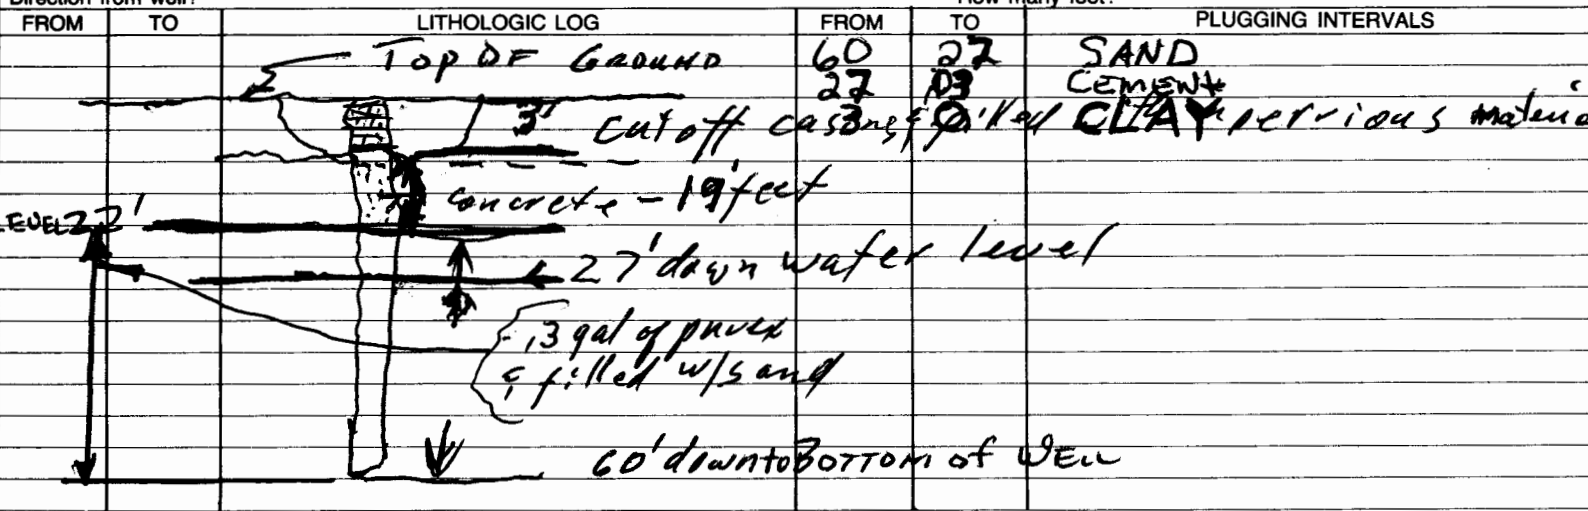 Direction from well? How many feet?
FROM TO LITHOLOGIC LOG FROM TO PLUGGING INTERVALS
TOP OF GROUND 60 22 SAND
22 03 CEMENT
3' cut off casing & filled CLAY pervious material
3 0
concrete - 19' feet
LEVEL 22'
27' down water level
3 gal of purex
& filled w/sand
60' down to BOTTOM of WELL